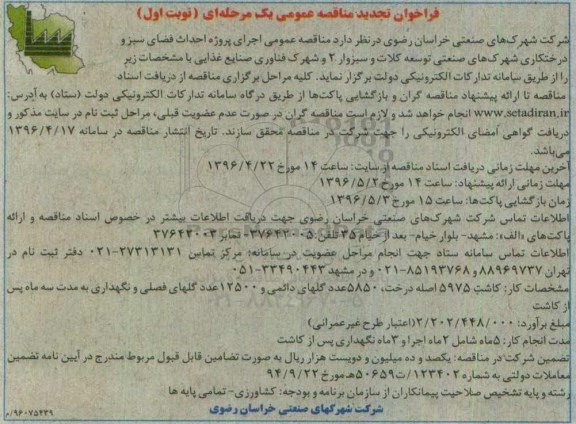 فراخوان تجدید مناقصه عمومی یک مرحله‌ای (نوبت اول)
شرکت شهرک‌های صنعتی خراسان رضوی درنظر دارد مناقصه عمومی اجرای پروژه احداث فضای سبز و
درختکاری شهرک‌های صنعتی توسعه کلات و سبزوار ۲ و شهرک فناوری صنایع غذایی با مشخصات زیر
را از طریق سامانه تدارکات الکترونیکی دولت برگزار نماید. کلیه مراحل برگزاری مناقصه از دریافت اسناد
مناقصه تا ارائه پیشنهاد مناقصه گران و بازگشایی پاکت‌ها از طریق درگاه سامانه تدارکات الکترونیکی دولت (ستاد) به آدرس:
www.setadiran.ir انجام خواهد شد و لازم است مناقصه گران در صورت عدم عضویت قبلی، مراحل ثبت نام در سایت مذکور و
دریافت گواهی امضای الکترونیکی را جهت شرکت در مناقصه محقق سازند. تاریخ انتشار مناقصه در سامانه ۱۳۹۶/۴/۱۷
می‌باشد.
آخرین مهلت زمانی دریافت اسناد مناقصه از سایت: ساعت ۱۴ مورخ ۱۳۹۶/۴/۲۲
مهلت زمانی ارائه پیشنهاد: ساعت ۱۴ مورخ ۱۳۹۶/۵/۲
زمان بازگشایی پاکت‌ها: ساعت ۱۵ مورخ ۱۳۹۶/۵/۳
اطلاعات تماس شرکت شهرک‌های صنعتی خراسان رضوی جهت دریافت اطلاعات بیشتر در خصوص اسناد مناقصه و ارائه
پاکت‌های «الف»: مشهد- بلوار خیام- بعد از خیام ۳۵ تلفن: ۰۵-۳۷۶۴۳۰ نمابر ۳۷۶۴۳۰۰۳
اطلاعات تماس سامانه ستاد جهت انجام مراحل عضویت در سامانه: مرکز تماس ۲۷۳۱۳۱۳۱-۰۲۱ دفتر ثبت نام در
تهران ۸۸۹۶۹۷۳۷ و ۸۵۱۹۳۷۶۸-۰۲۱ و در مشهد ۳۳۴۹۰۴۴۳-۰۵۱
مشخصات کار: کاشت ۵۹۷۵ اصله درخت، ۵۸۵۰عدد گلهای دائمی و ۱۲۵۰۰عدد گلهای فصلی و نگهداری به مدت سه ماه پس
از کاشت
مبلغ برآورد: ۲/۲۰۲/۴۴۸/۰۰۰(اعتبار طرح غیرعمرانی)
مدت انجام کار: ۵ماه شامل ۲ماه اجرا و ۳ماه نگهداری پس از کاشت
تضمین شرکت در مناقصه: یکصد و ده میلیون و دویست هزار ریال به صورت تضامین قابل قبول مربوط مندرج در آیین نامه تضمین
معاملات دولتی به شماره ۱۲۳۴۰۲/ت۵۰۶۵۹هـ مورخ ۹۴/۹/۲۲
رشته و پایه تشخیص صلاحیت پیمانکاران از سازمان برنامه و بودجه: کشاورزی- تمامی پایه ها
شرکت شهرکهای صنعتی خراسان رضوی
۹۶۰۷۵۲۳۹/م